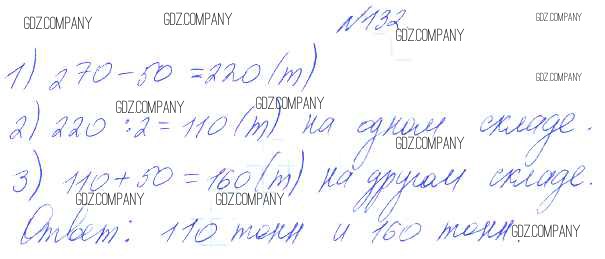 GDZ.COMPANY №132 GDZ.COMPANY GDZ.COMPANY
1) 270-50=220(т) GDZ.COMPANY
GDZ.COMPANY GDZ.COMPANY
2) 220:2=110(т) на одном складе.
GDZ.COMPANY
3) 110+50=160(т) на другом складе.
GDZ.COMPANY GDZ.COMPANY
Ответ: 110 тонн и 160 тонн. GDZ.COMPANY